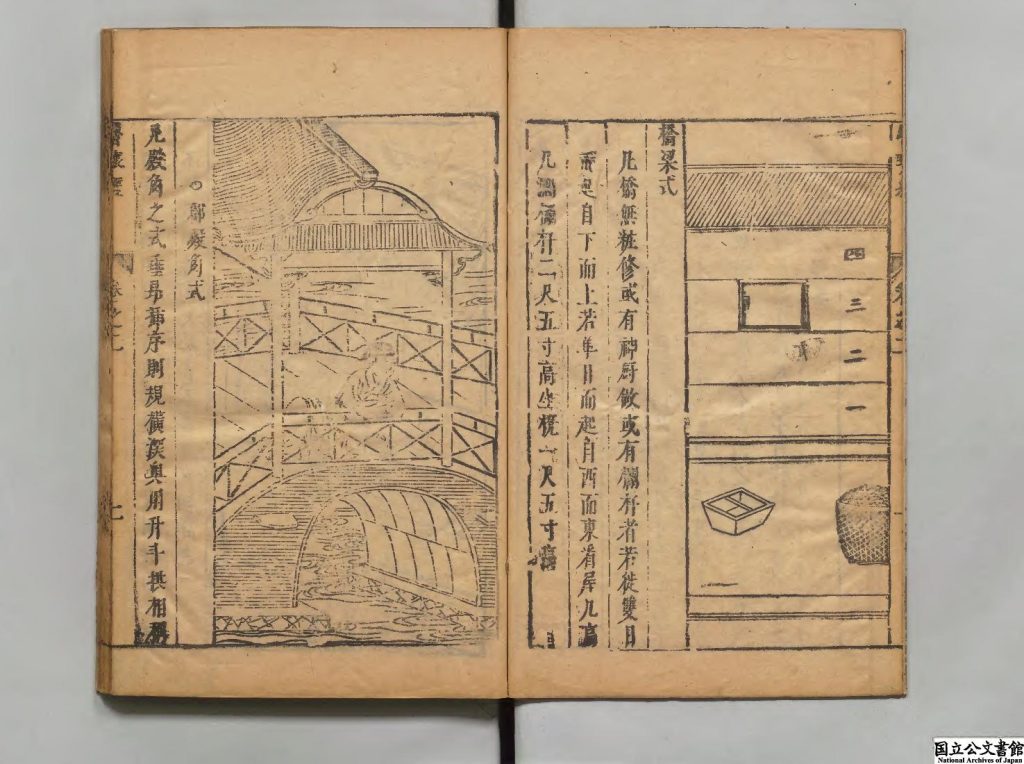 四
三
二
一
橋梁式
凡橋無粧修或有神厨做或有欄杆者若從雙日
而起自下而上若單日而起自西而東看屋几高
几濶欄杆二尺五寸高坐櫈一尺五寸高
○郡殿角式
凡殿角之式垂昂插序則規橫深奥用升斗拱相稱
国立公文書館
National Archives of Japan